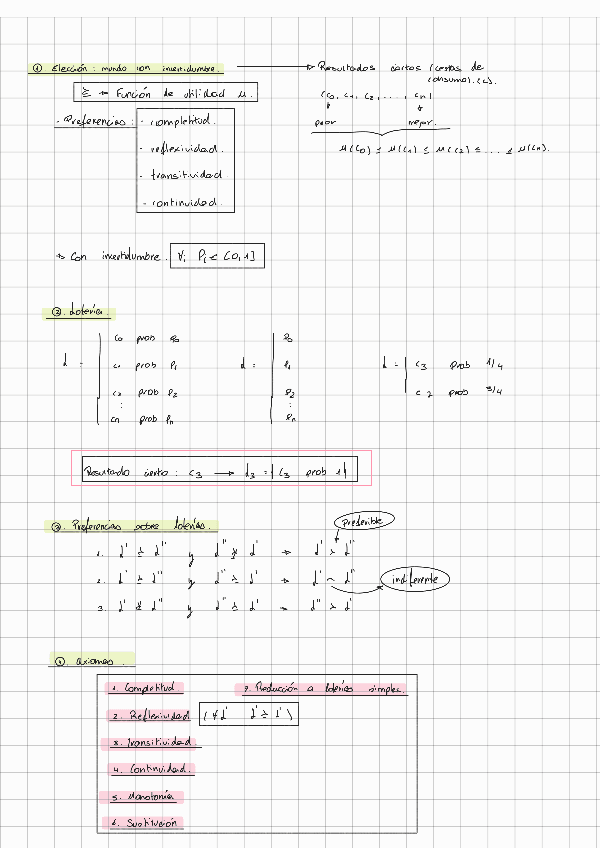 ① Elección: mundo con incertidumbre. → Resultados ciertos (cestas de consumo). (C).
≿ → Función de utilidad u.
(c0, c1, c2, ..., cn)
peor mejor.
u(c0) ≤ u(c1) ≤ u(c2) ≤ ... ≤ u(cn).
· Preferencias: - completitud.
- reflexividad.
- transitividad.
- continuidad.
→ Con incertidumbre. ∀i Pi ∈ [0,1]
② Lotería.
L = | c0 prob p0
c1 prob p1
c2 prob p2
⋮
cn prob pn
L = | p0
p1
p2
⋮
pn
L = | c3 prob 1/4
c2 prob 3/4
Resultado cierto: c3 → L3 = | c3 prob 1 |
③ Preferencias sobre loterías.
preferible
1. L' ≿ L'' y L'' ⋡ L' → L' ≻ L''
2. L' ≿ L'' y L'' ≿ L' → L' ~ L'' indiferente
3. L' ⋡ L'' y L'' ≿ L' → L'' ≻ L'
④ axiomas.
1. Completitud 7. Reducción a loterías simples.
2. Reflexividad (∀L' L' ≿ L')
3. Transitividad.
4. Continuidad.
5. Monotonía
6. Sustitución